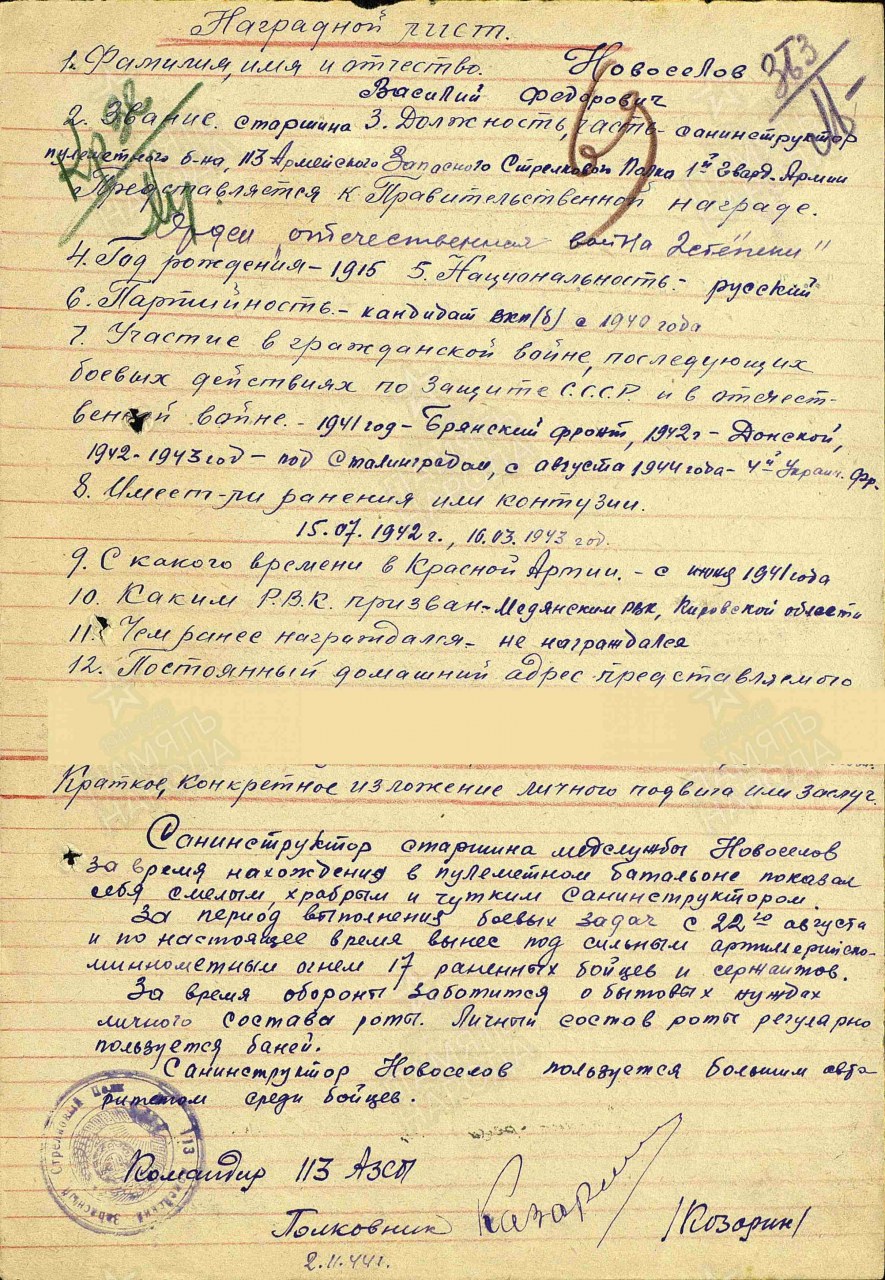 Наградной лист.
1. Фамилия, имя и отчество. Новоселов
Василий Федорович
2. Звание. старшина 3. Должность, часть - санинструктор
пулеметного б-на, 113 Армейского Запасного Стрелкового Полка 1й Гвард. Армии
Представляется к Правительственной награде.
"Орден отечественная война 2 степени"
4. Год рождения - 1915 5. Национальность. - русский
6. Партийность. - кандидат ВКП(б) с 1940 года
7. Участие в гражданской войне, последующих
боевых действиях по защите С.С.С.Р. и в отечест-
венной войне. - 1941 год - Брянский фронт, 1942г - Донской,
1942-1943 год - под Сталинградом, с августа 1944 года - 4й Украин. Фр.
8. Имеет-ли ранения или контузии.
15.07.1942 г., 16.03.1943 год.
9. С какого времени в Красной Армии. - с июня 1941 года
10. Каким Р.В.К. призван - Медянским РВК, Кировской области
11. Чем ранее награждался - не награждался
12. Постоянный домашний адрес представляемого
Краткое, конкретное изложение личного подвига или заслуг.
Санинструктор старшина медслужбы Новоселов
за время нахождения в пулеметном батальоне показал
себя смелым, храбрым и чутким санинструктором.
За период выполнения боевых задач с 22го августа
и по настоящее время вынес под сильным артиллерийско-
минометным огнем 17 раненных бойцев и сержантов.
За время обороны заботится о бытовых нуждах
личного состава роты. Личный состав роты регулярно
пользуется баней.
Санинструктор Новоселов пользуется большим авта
ритетом среди бойцев.
Командир 113 АЗСП
Полковник Казарин /Козорин/
2.11.44 г.
363
113
Запасный Стрелковый Полк
ПАМЯТЬ НАРОДА